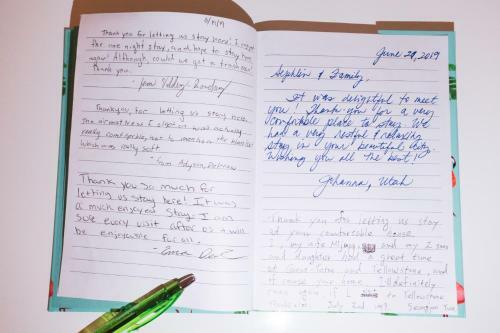 Thank you for letting us stay here! I enjoyed
the one night stay, and hope to stay here
again! Although, could we get a trash can?
Thank you.
from
Thankyou, for letting us stay here,
the airmattress I slept in was actually
really comfortable, not to mention the blanket
which was really soft.
from Adyson,
Thank you so much for
letting us stay here! It was
a much enjoyed stay. I am
sure every visit after us will
be enjoyable for all.
Emma
June 29, 2019
& Family,
It was delightful to meet
you! Thank you for a very
comfortable place to stay. We
had a very restful & relaxing
stay in your beautiful city.
Wishing you all the best!
Johanna, Utah
Thank you for letting us stay
at your comfortable house
I, my wife and my 2 sons
and daughter had a great time
at Grand Teton and Yellowstone, and
of course your home. I'll definitely
again, if I to Yellowstone
July 2nd 2019